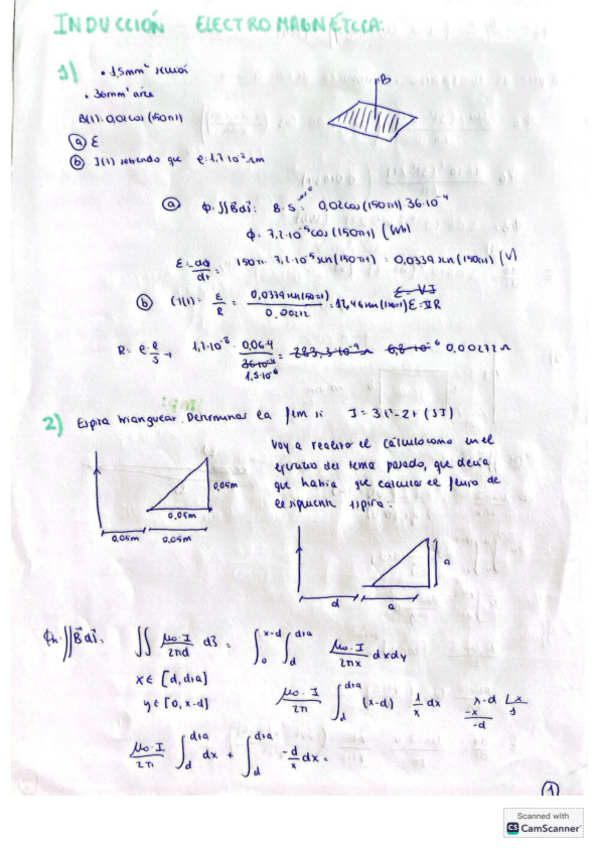 INDUCCIÓN ELECTROMAGNÉTICA:
1) • 1,5mm² sección
• 36mm² área
B(t): 0,02cos(150πt)
B
ⓐ ε
ⓑ I(t) sabiendo que ρ: 1,7·10⁻⁸ Ωm
ⓐ Φ: ∬B⃗ds⃗: B·S: 0,02cos(150πt) 36·10⁻⁴
Φ: 7,2·10⁻⁵cos(150πt) (Wb)
ε = dΦ/dt = 150π · 7,2·10⁻⁵ sen(150πt) = 0,0339 sen(150πt) (V)
ⓑ I(t): ε/R = 0,0339 sen(150πt)/0,00272 = 12,46 sen(150πt)
R = ρ·l/s → 1,7·10⁻⁸ · 0,064/1,5·10⁻⁶ = 0,00272 Ω
2) Espira triangular. Determinar la fem si I = 3t²-2t (SI)
Voy a realizar el cálculo como en el
ejercicio del tema pasado, que decía
que había que calcular el flujo de
la siguiente espira.
0,05m
0,05m
0,05m 0,05m
a
d a
Φm: ∬B⃗ds⃗: ∬ μ₀·I/2πd ds⃗ = ∫₀^(x-d) ∫_d^(d+a) μ₀·I/2πx dxdy
x∈[d, d+a]
y∈[0, x-d]
μ₀·I/2π ∫_d^(d+a) (x-d) 1/x dx
x-d | x
-x 1
-d
μ₀·I/2π ∫_d^(d+a) dx + ∫_d^(d+a) -d/x dx =
1
Scanned with
CS CamScanner